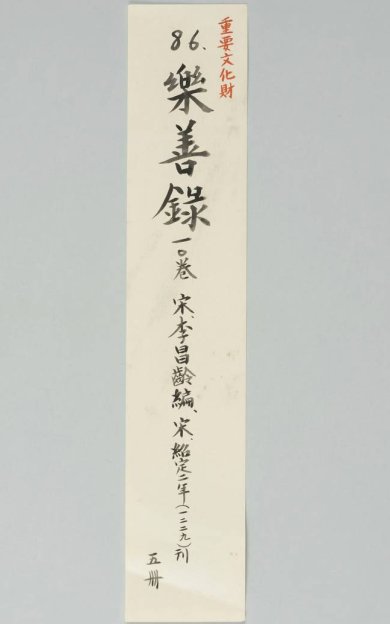 重要文化財
86.
樂善錄
一〇巻 宋、李昌齡編、宋、紹定二年(一二二九)刊
五冊